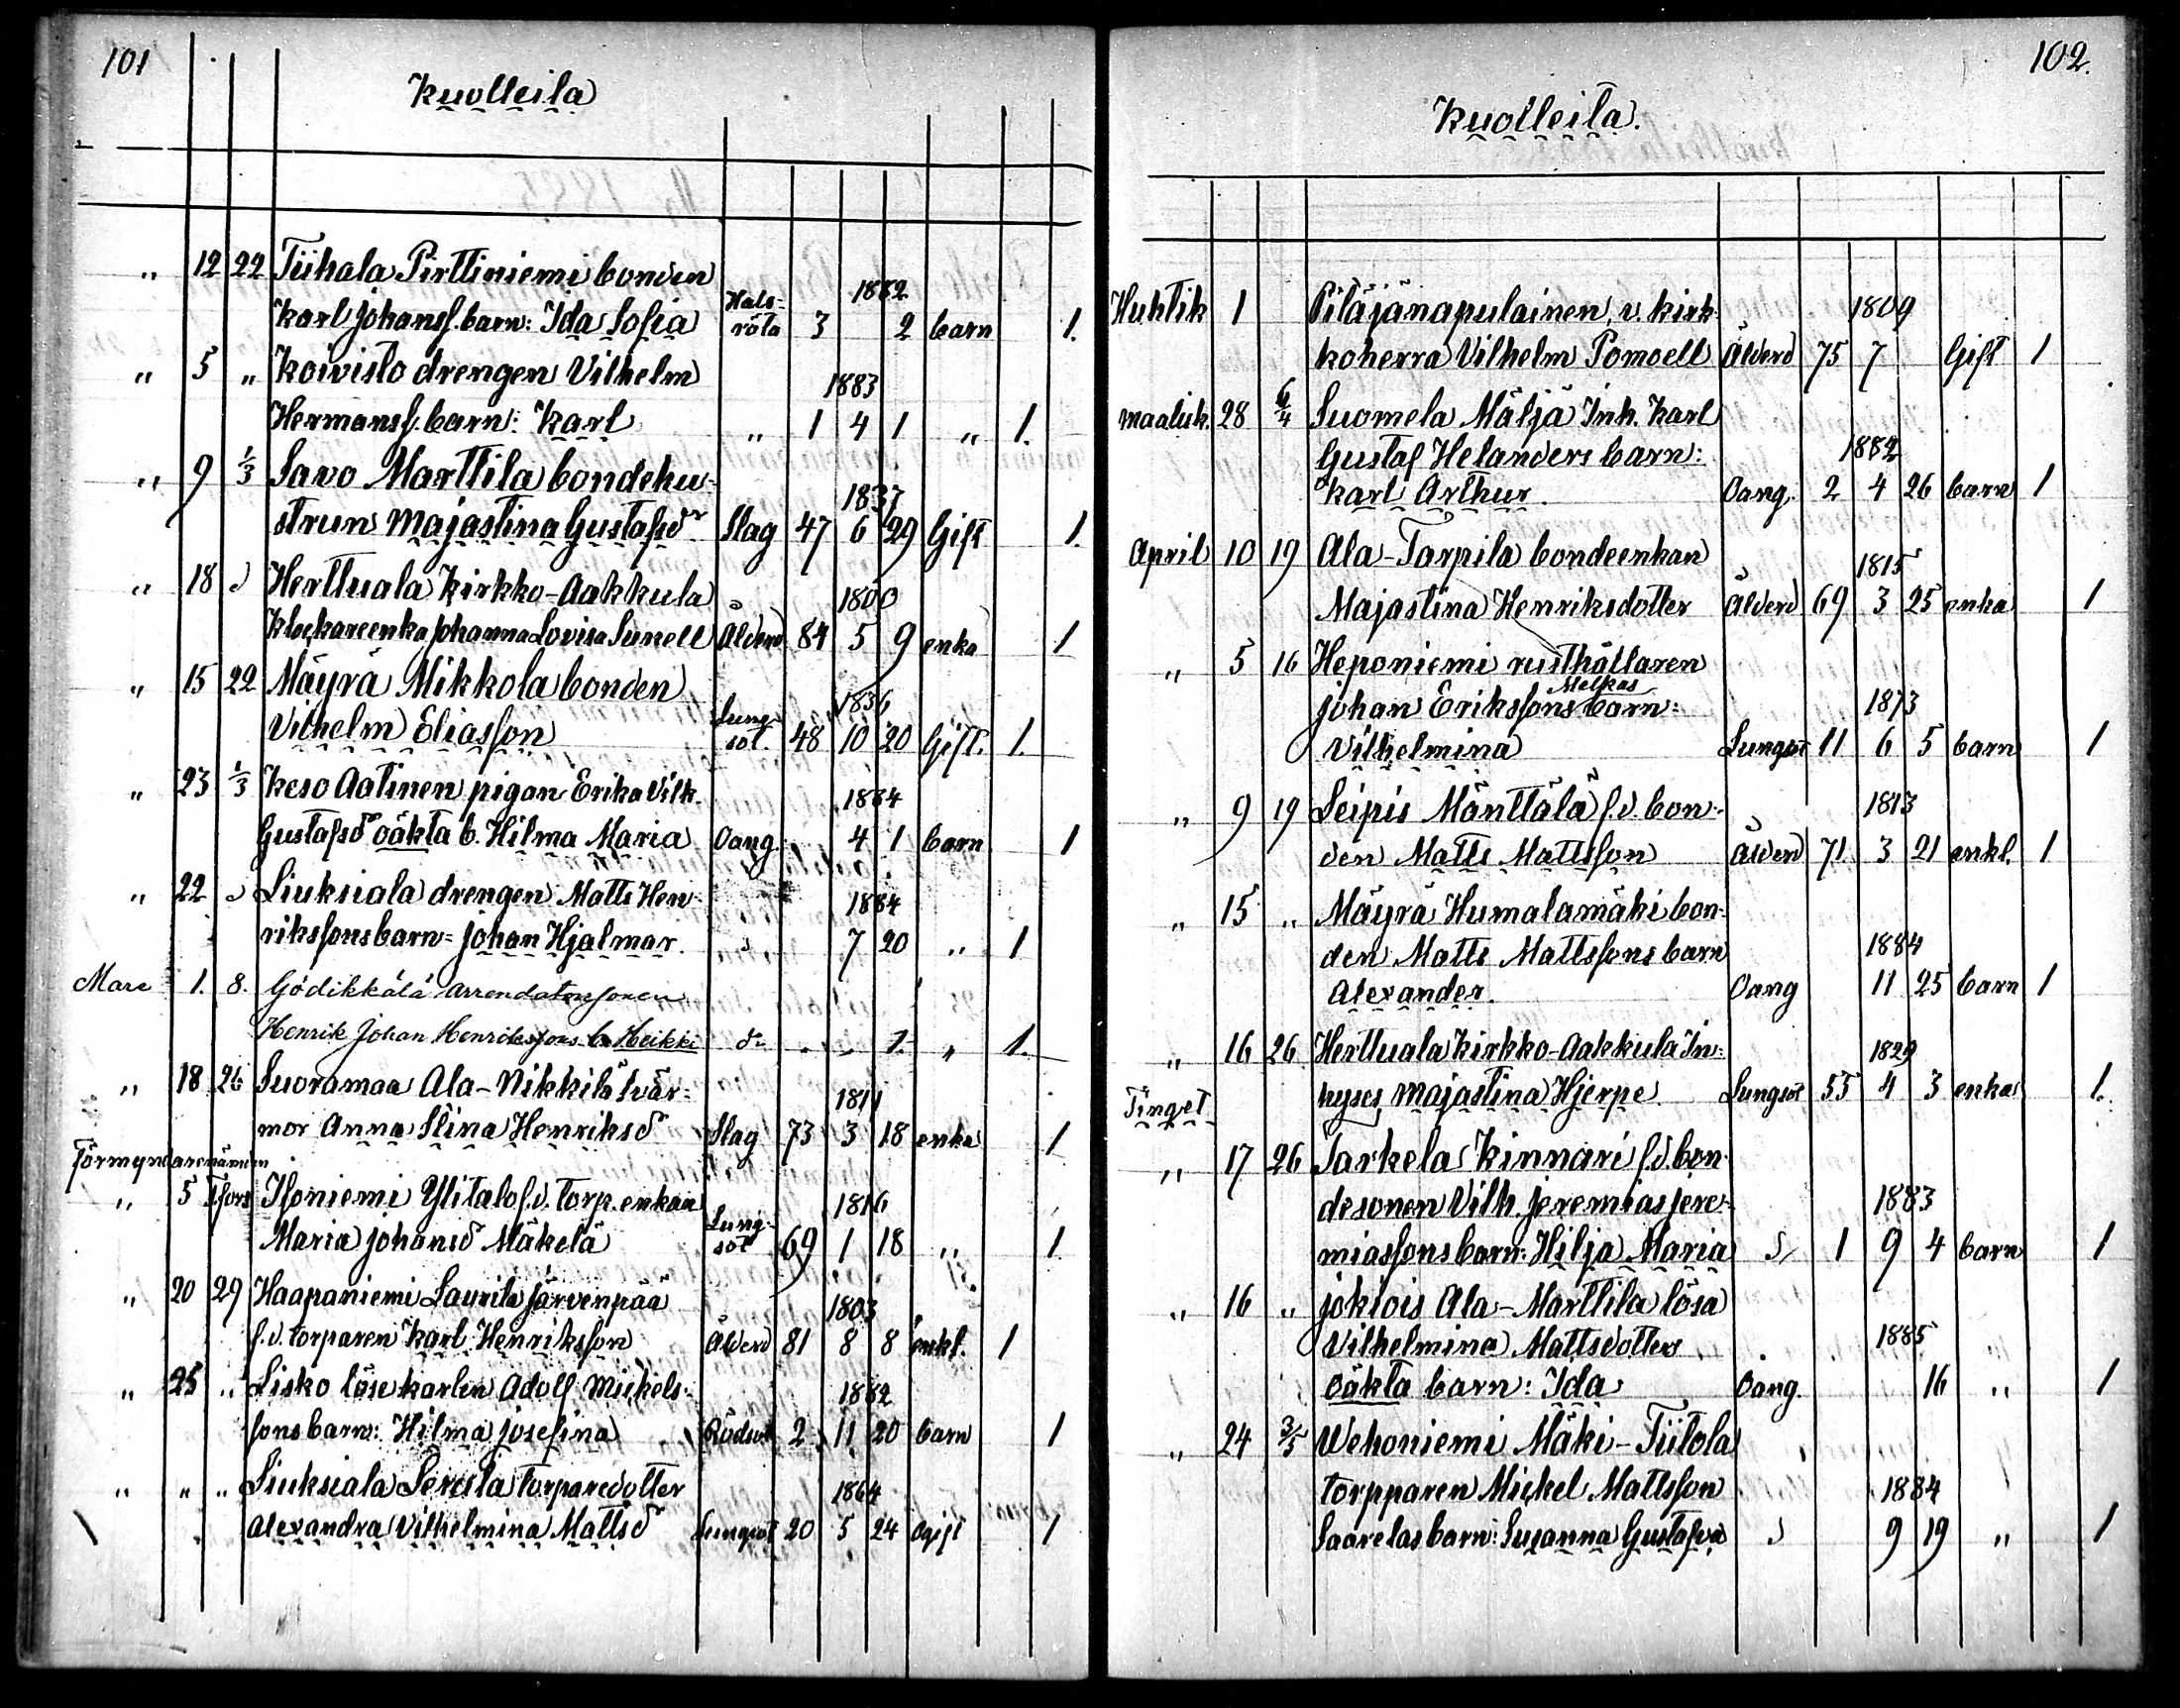 101
Kuolleila
„ 12 22 Tiihala Pirttiniemi bonden
Karl Johanss. barn: Ida Sofia Hals-röta 3 1882 2 barn 1.
„ 5 „ Koivisto drengen Vilhelm
Hermanss. barn: Karl „ 1 1883 4 1 „ 1.
„ 9 1/3 Savo Marttila bondehu-
strun Majastina Gustafsdr Slag 47 1837 6 29 Gift 1.
„ 18 d Herttuala Kirkko-Aakkula
Klockareenka Johanna Lovisa Sunell Ålderd 84 1800 5 9 enka 1
„ 15 22 Mäyrä Mikkola bonden
Vilhelm Eliasson Lung-sot. 48 1836 10 20 Gift. 1.
„ 23 1/3 Keso Aatinen pigan Erika Vilh.
Gustafsd oäkta b. Hilma Maria Oang. 1884 4 1 barn 1
„ 22 d Liuksiala drengen Matts Hen-
rikssons barn: Johan Hjalmar. d 1884 7 20 „ 1
Mars 1. 8. Gödikkälä arrendatorssonen
Henrik Johan Henrikssons b. Heikki d:o - - 1. „ 1.
„ 18 26 Suoramaa Ala-Nikkilä svär-
mor Anna Stina Henriksd Slag 73 1811 3 18 enka 1
Förmyndarenämden
„ 5 Tfors Isoniemi Ylitalo f.d. torp. enkan
Maria Johansd Mäkelä Lung-sot 69 1816 1 18 „ 1
„ 20 29 Haapaniemi Laurila Järvenpää
f.d. torparen Karl Henriksson Ålderd 81 1803 8 8 enkl. 1
„ 25 „ Lisko lösekarlen Adolf Mickels-
sons barn: Hilma Josefina Rödsot 2 1882 11 20 barn 1
„ „ „ Liuksiala torparedotter
Alexandra Vilhelmina Mattsd Lungsot 20 1864 5 24 ogift 1
102.
Kuolleita.
Huhtik 1 Pitäjänapulainen, v. kirk-
koherra Vilhelm Pomoell Ålderd 75 1809 7 Gift 1
Maalisk. 28 6/4 Suomela Mäljä Inh. Karl
Gustaf Helanders barn:
Karl Arthur. Oang. 2 1882 4 26 barn 1
April 10 19 Ala-Tarpila bondeenkan
Majastina Henriksdotter Ålderd 69 1815 3 25 enka 1
„ 5 16 Heponiemi rusthållaren
Johan Erikssons Melkas barn:
Vilhelmina Lungsot 11 1873 6 5 barn 1
„ 9 19 Leipis Mänttälä f.d. bon-
den Matts Mattsson Ålderd 71 1813 3 21 enkl. 1
„ 15 „ Mäyrä Humalamäki bon-
den Matts Mattssons barn
Alexander. Oang 1884 11 25 barn 1
„ 16 26 Herttuala Kirkko-Aakkula In-
hyses Majastina Hjerpe. Lungsot 55 1829 4 3 enka 1.
Tinget
„ 17 26 Sarkela Kinnari f.d. bon-
desonen Vilh. Jeremias Jere-
miassons barn: Hilja Maria d 1 1883 9 4 barn 1
„ 16 „ Jokiois Ala-Marttila lösa
Vilhelmina Mattsdotters
oäkta barn: Ida Oang. 1885 16 „ 1
„ 24 3/5 Wehoniemi Mäki-Tiitola
torpparen Mickel Mattsson
Saarelas barn: Susanna Gustafva d 1884 9 19 „ 1